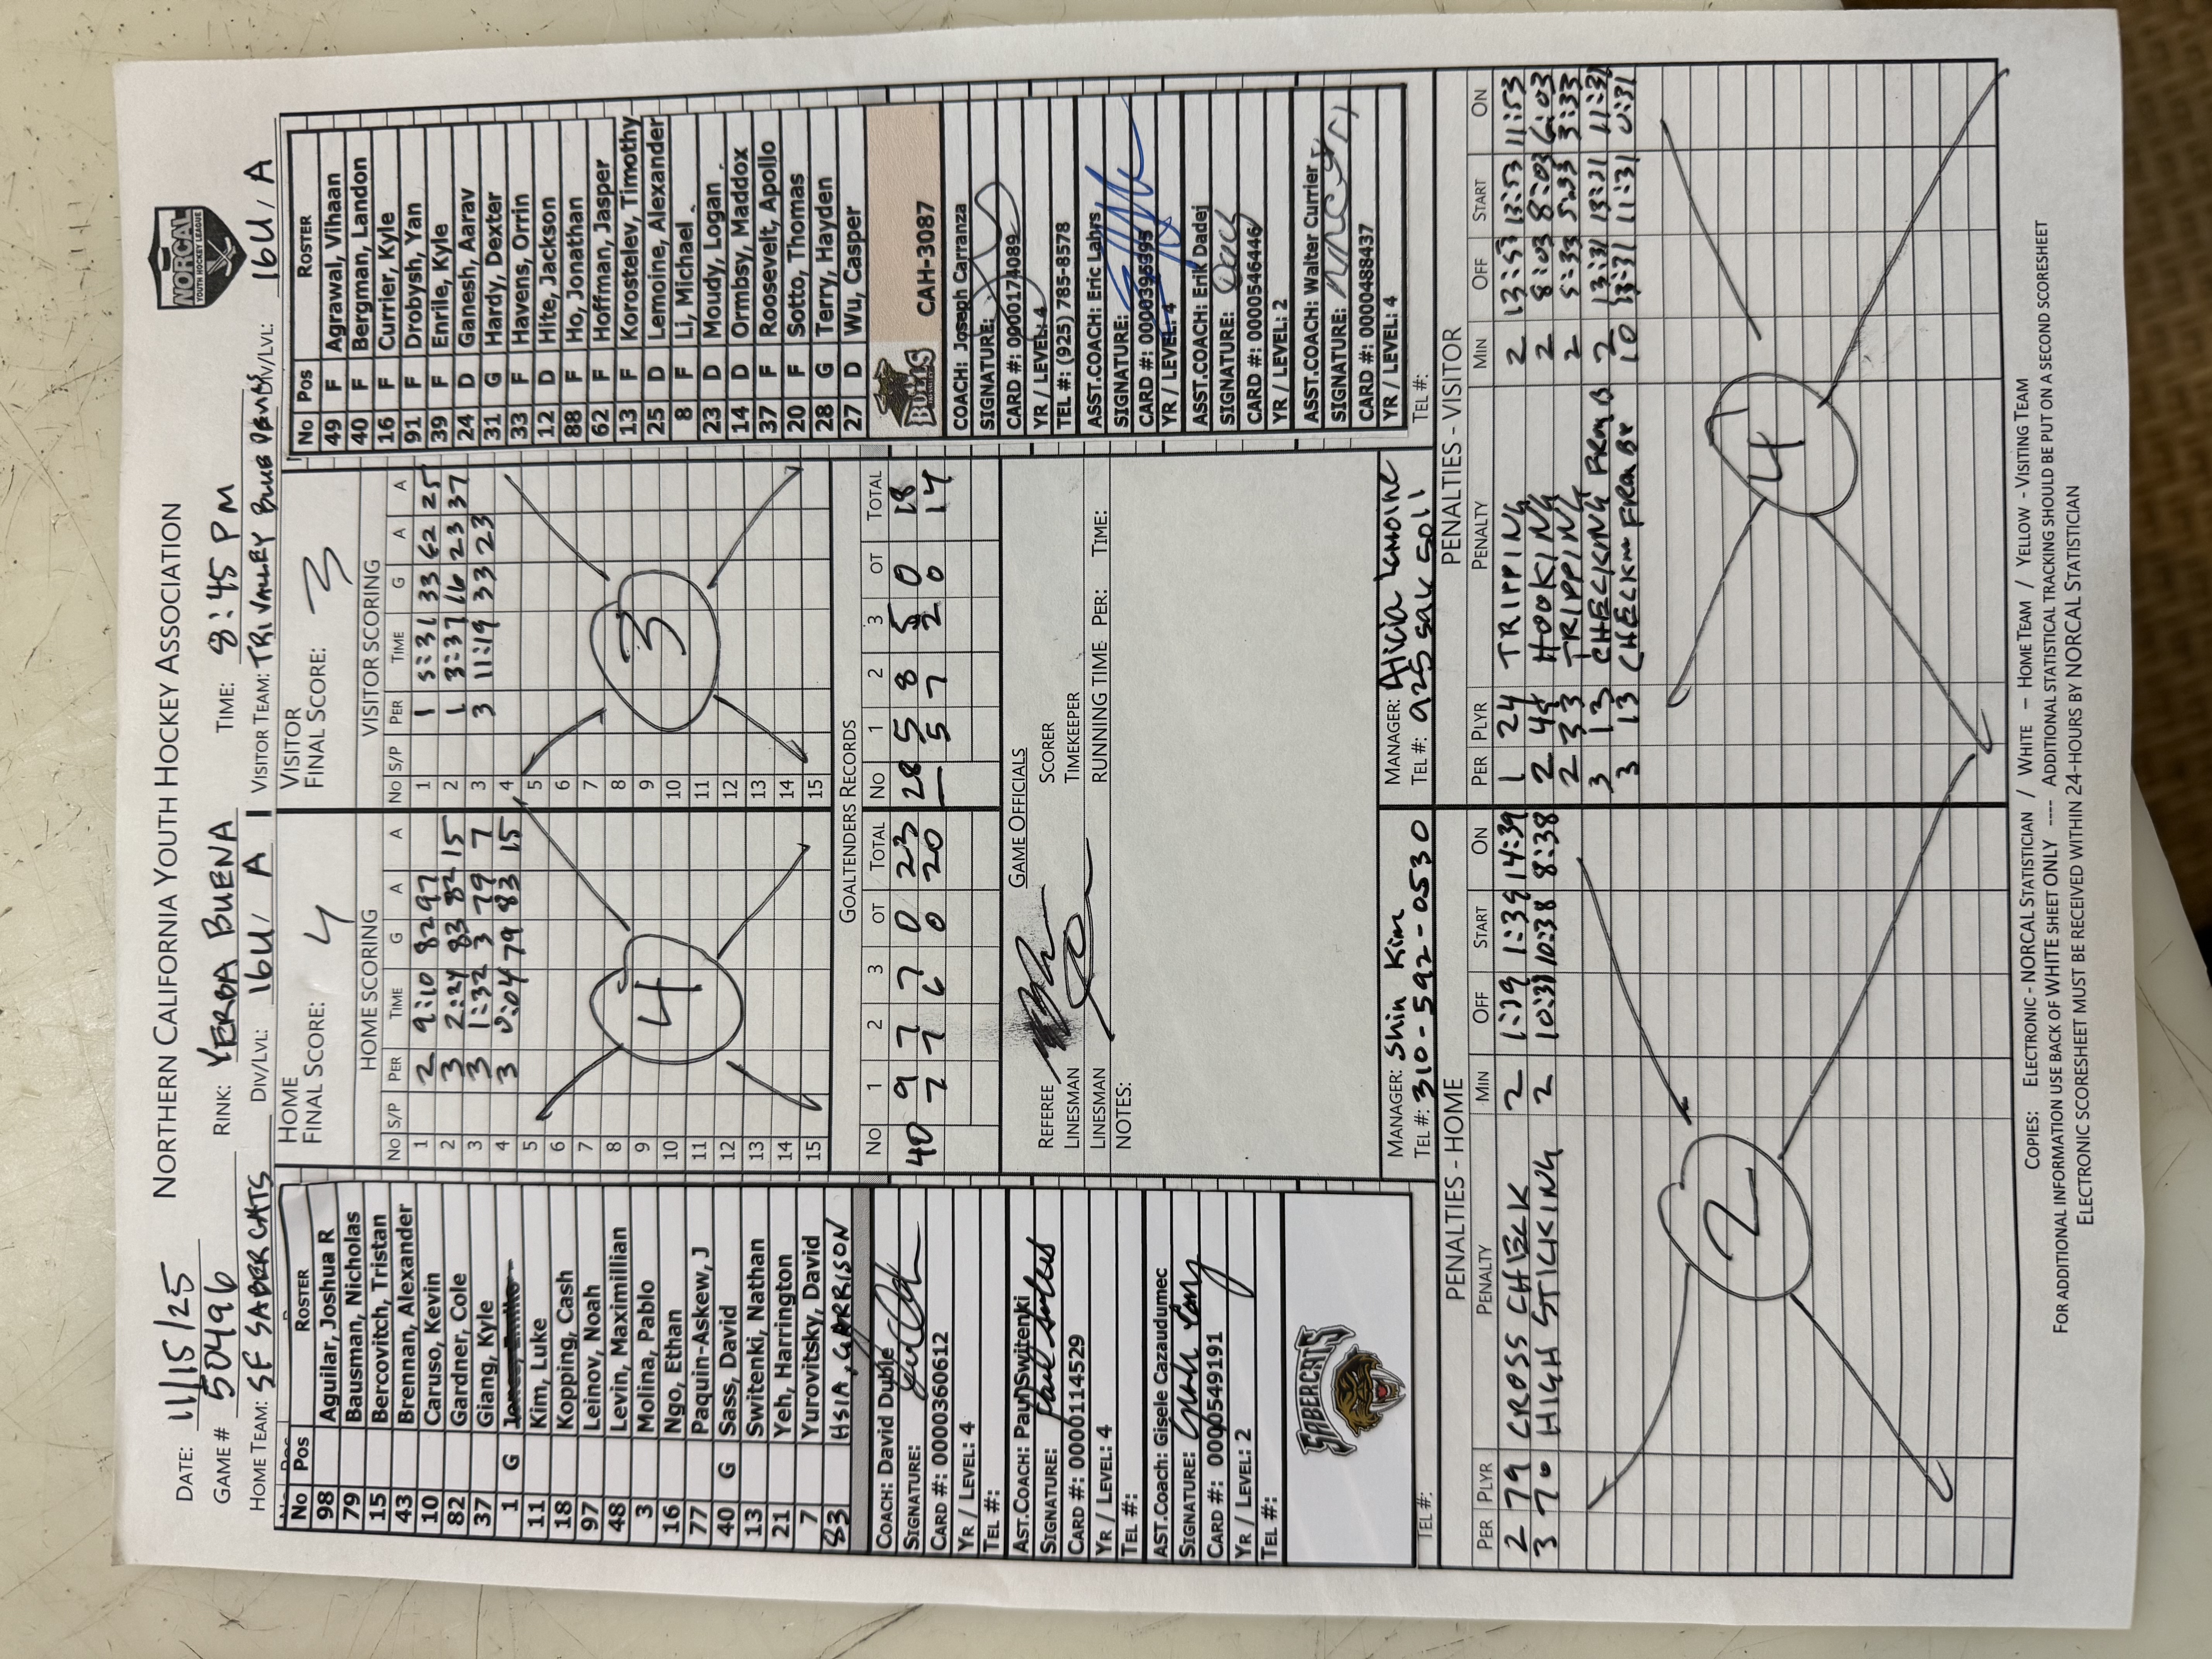 NORTHERN CALIFORNIA YOUTH HOCKEY ASSOCIATION
NORCAL
YOUTH HOCKEY LEAGUE
DATE: 11/15/25
GAME # 50496 RINK: YERBA BUENA TIME: 8:45 PM
HOME TEAM: SF SABERCATS DIV/LVL: 16U / A VISITOR TEAM: TRI VALLEY BLUE DIV/LVL: 16U / A
No Pos ROSTER
98 Aguilar, Joshua R
79 Bausman, Nicholas
15 Bercovitch, Tristan
43 Brennan, Alexander
10 Caruso, Kevin
82 Gardner, Cole
37 Giang, Kyle
1 G
11 Kim, Luke
18 Kopping, Cash
97 Leinov, Noah
48 Levin, Maximillian
3 Molina, Pablo
16 Ngo, Ethan
77 Paquin-Askew, J
40 G Sass, David
13 Switenki, Nathan
21 Yeh, Harrington
7 Yurovitsky, David
83 HSIA, GARRISON
COACH: David Duble
SIGNATURE:
CARD #: 0000360612
YR / LEVEL: 4
TEL #:
AST.COACH: Paul Switenki
SIGNATURE:
CARD #: 0000114529
YR / LEVEL: 4
TEL #:
AST.COACH: Gisele Cazaudumec
SIGNATURE:
CARD #: 0000549191
YR / LEVEL: 2
TEL #:
SABERCATS
TEL #:
HOME
FINAL SCORE: 4
HOME SCORING
No S/P PER TIME G A A
1 2 9:10 82 97
2 3 2:24 83 82 15
3 3 1:32 3 79 7
4 3 0:04 79 83 15
5
6
7
8
9
10
11
12
13
14
15
4
VISITOR
FINAL SCORE: 3
VISITOR SCORING
No S/P PER TIME G A A
1 1 5:31 33 62 25
2 1 3:37 16 23 37
3 3 11:19 33 23
4
5
6
7
8
9
10
11
12
13
14
15
3
GOALTENDERS RECORDS
No 1 2 3 OT TOTAL No 1 2 3 OT TOTAL
40 9 7 7 0 23 28 5 8 5 0 18
7 7 6 0 20 5 7 2 0 14
GAME OFFICIALS
REFEREE SCORER
LINESMAN TIMEKEEPER
LINESMAN RUNNING TIME PER: TIME:
NOTES:
MANAGER: Shin Kim
TEL #: 310-592-0530
MANAGER: Alicia Lemoine
TEL #: 925
No Pos ROSTER
49 F Agrawal, Vihaan
40 F Bergman, Landon
16 F Currier, Kyle
91 F Drobysh, Yan
39 F Enrile, Kyle
24 D Ganesh, Aarav
31 G Hardy, Dexter
33 F Havens, Orrin
12 D Hite, Jackson
88 F Ho, Jonathan
62 F Hoffman, Jasper
13 F Korostelev, Timothy
25 D Lemoine, Alexander
8 F Li, Michael
23 D Moudy, Logan
14 D Ormbsy, Maddox
37 F Roosevelt, Apollo
20 F Sotto, Thomas
28 G Terry, Hayden
27 D Wu, Casper
BULLS CAH-3087
COACH: Joseph Carranza
SIGNATURE:
CARD #: 0000174089
YR / LEVEL: 4
TEL #: (925) 785-8578
ASST.COACH: Eric Labrs
SIGNATURE:
CARD #: 0000396395
YR / LEVEL: 4
ASST.COACH: Erik Dadej
SIGNATURE:
CARD #: 0000546446
YR / LEVEL: 2
ASST.COACH: Walter Currier
SIGNATURE:
CARD #: 0000488437
YR / LEVEL: 4
TEL #:
PENALTIES - HOME
PER PLYR PENALTY MIN OFF START ON
2 79 CROSS CHECK 2 1:39 1:39 14:39
3 70 HIGH STICKING 2 10:38 10:38 8:38
2
PENALTIES - VISITOR
PER PLYR PENALTY MIN OFF START ON
1 24 TRIPPING 2 13:53 13:53 11:53
2 49 HOOKING 2 8:03 8:03 6:03
2 33 TRIPPING 2 5:33 5:33 3:33
3 13 CHECKING FROM B 2 13:31 13:31 11:31
3 13 CHECKING FROM BH 10 13:31 11:31 0:31
4
COPIES: ELECTRONIC - NORCAL STATISTICIAN / WHITE – HOME TEAM / YELLOW - VISITING TEAM
FOR ADDITIONAL INFORMATION USE BACK OF WHITE SHEET ONLY ---- ADDITIONAL STATISTICAL TRACKING SHOULD BE PUT ON A SECOND SCORESHEET
ELECTRONIC SCORESHEET MUST BE RECEIVED WITHIN 24-HOURS BY NORCAL STATISTICIAN